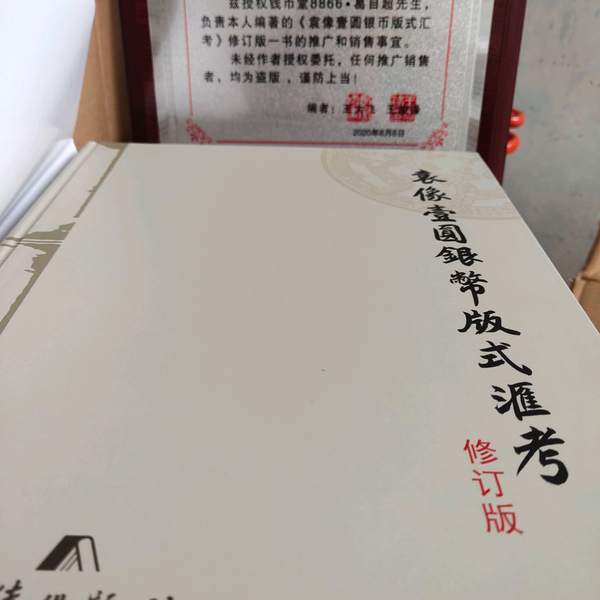 兹授权钱币堂8866·易自超先生，
负责本人编著的《袁像壹圆银币版式汇
考》修订版一书的推广和销售事宜。
未经作者授权委托，任何推广销售
者，均为盗版，谨防上当！
编者：
2020年8月8日
袁像壹圓銀幣版式滙考
修订版